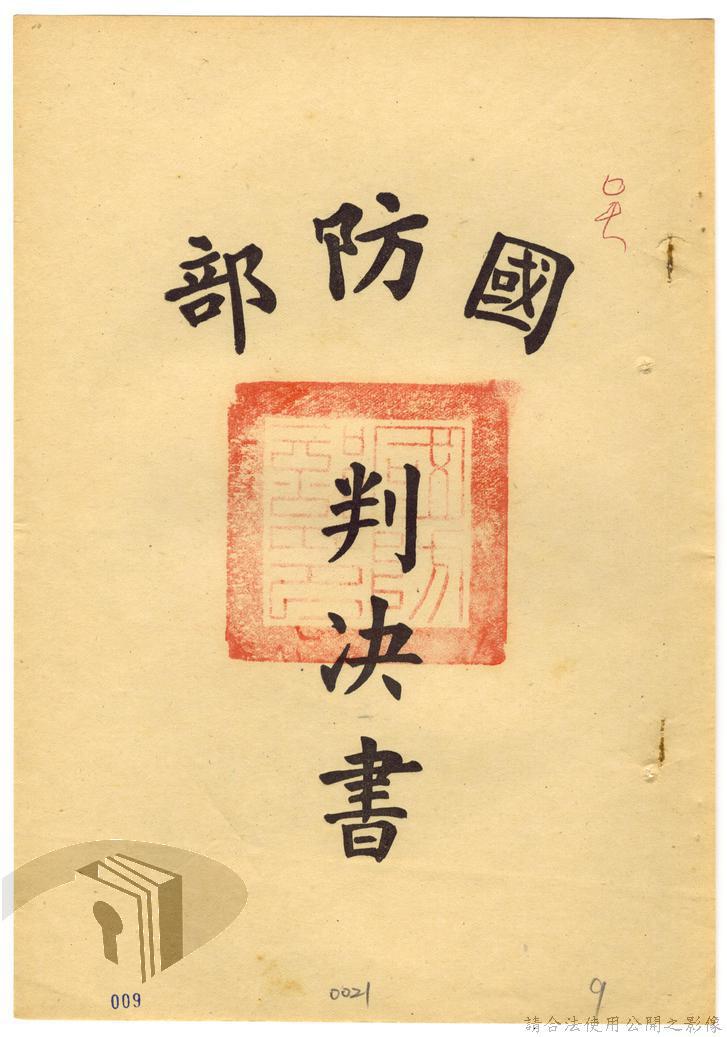 國防部
判決書
009
0021
9
請合法使用公開之影像